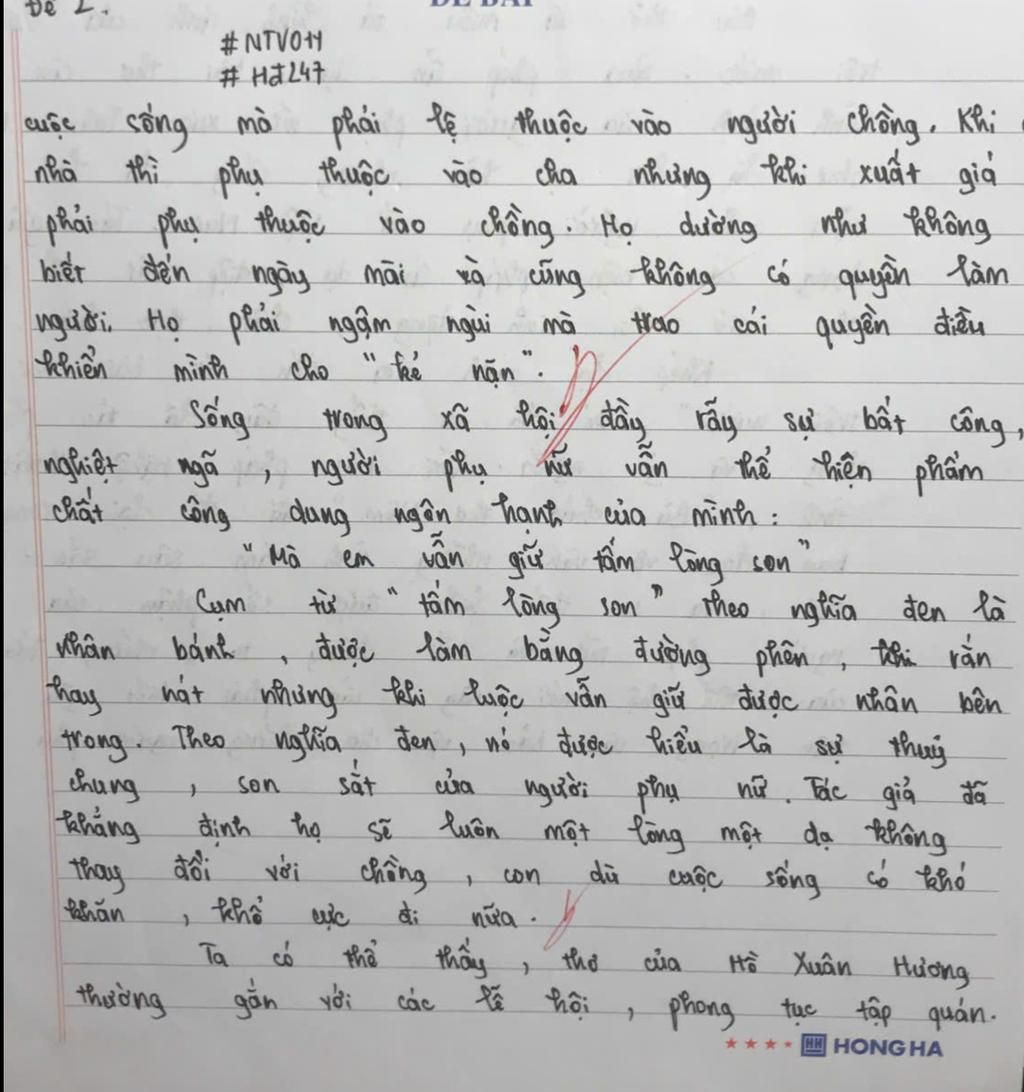 Đề 2.
ĐỀ BÀI
#NTVO11
#HJ247
cuộc sống mà phải lệ thuộc vào người chồng. Khi
nhà thì phụ thuộc vào cha nhưng khi xuất giá
phải phụ thuộc vào chồng. Họ dường như không
biết đến ngày mai và cũng không có quyền làm
người. Họ phải ngậm ngùi mà trao cái quyền điều
khiển mình cho "kẻ nặn".
Sống trong xã hội đầy rẫy sự bất công,
nghiệt ngã, người phụ nữ vẫn thể hiện phẩm
chất công dung ngôn hạnh của mình:
"Mà em vẫn giữ tấm lòng son"
Cụm từ "tấm lòng son" theo nghĩa đen là
nhân bánh, được làm bằng đường phên, khi rắn
hay nát nhưng khi luộc vẫn giữ được nhân bên
trong. Theo nghĩa đen, nó được hiểu là sự thuỷ
chung, son sắt của người phụ nữ. Tác giả đã
khẳng định họ sẽ luôn một lòng một dạ không
thay đổi với chồng, con dù cuộc sống có khó
khăn, khổ cực đi nữa.
Ta có thể thấy, thơ của Hồ Xuân Hương
thường gắn với các lễ hội, phong tục tập quán.
HH HONG HA